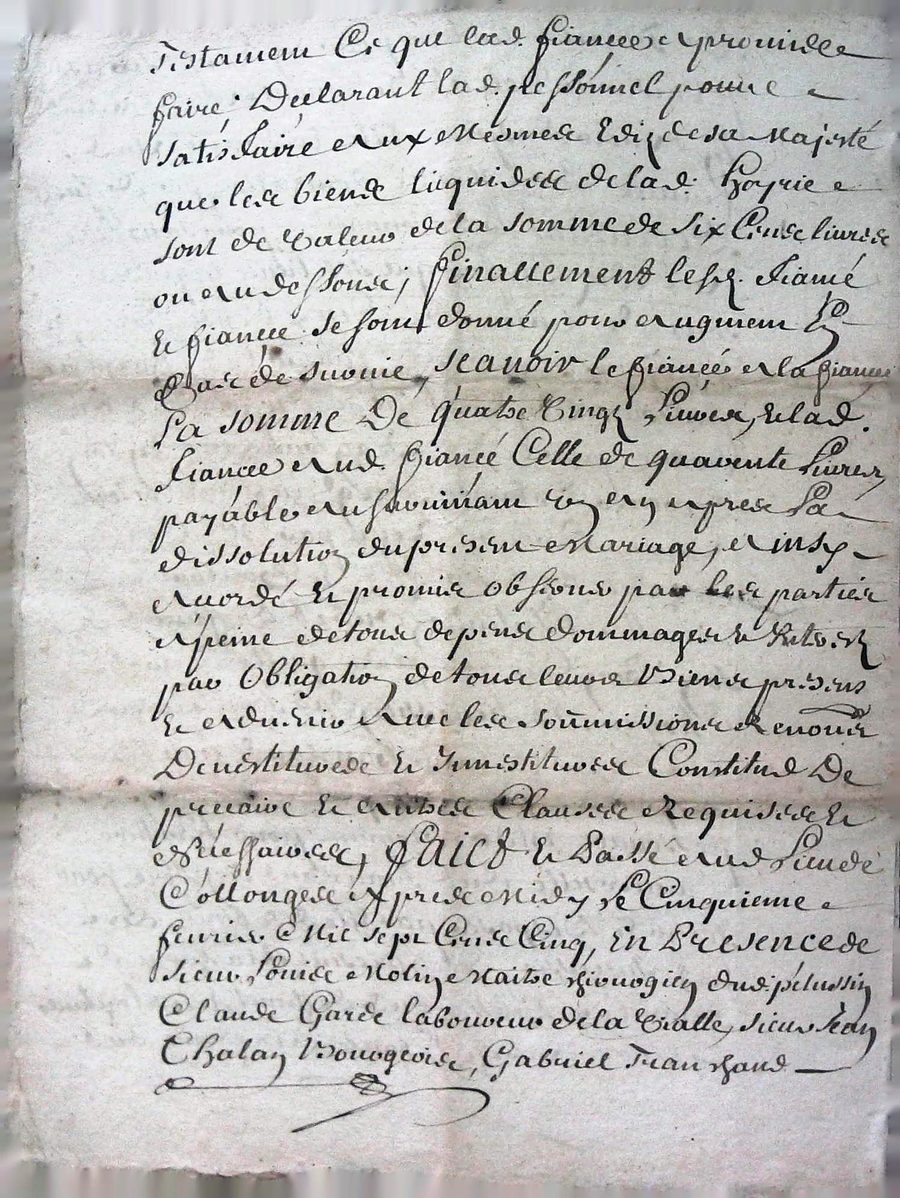 Testament Ce que lad. fiancée a promis de
faire, Declarant lad. pessonnel pour
satisfaire aux mesmes Ediz de sa Majesté
que les biens liquides de lad. hoyrie
sont de valeur de la somme de six Cens livres
ou au dessous; finallement les fiancé
et fiancée se sont donné pour augment et
gas de survie, scavoir le fiancé a la fiancée
La somme De quatre vingt Livres, et lad.
fiancée aud. fiancé Celle de quarente Livres
payable au survivant un an apres La
dissolution du present mariage, ainsy
acordé et promis observer par les parties
a peine de tous depens dommages et Interez
par Obligation de tous leurs Biens presens
et advenir avec les soummissions Renons
Devestitures et Investitures Constitud De
precaire et autres Clauses Requises et
Necessaires, faict et Passé aud. Lieu de
Collonges apres midy Le Cinquieme
fevrier Mil sept Cens Cinq, En Presence de
sieur Louis Molin Maitre chirurgien dud. pelussin
Claude Garde laboureur de la Valle, sieur Jean
Chalan Bourgeois, Gabriel Franchand